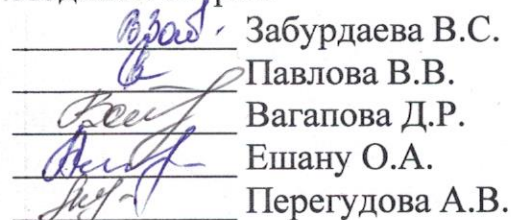 Забурдаева В.С.
Павлова В.В.
Вагапова Д.Р.
Ешану О.А.
Перегудова А.В.